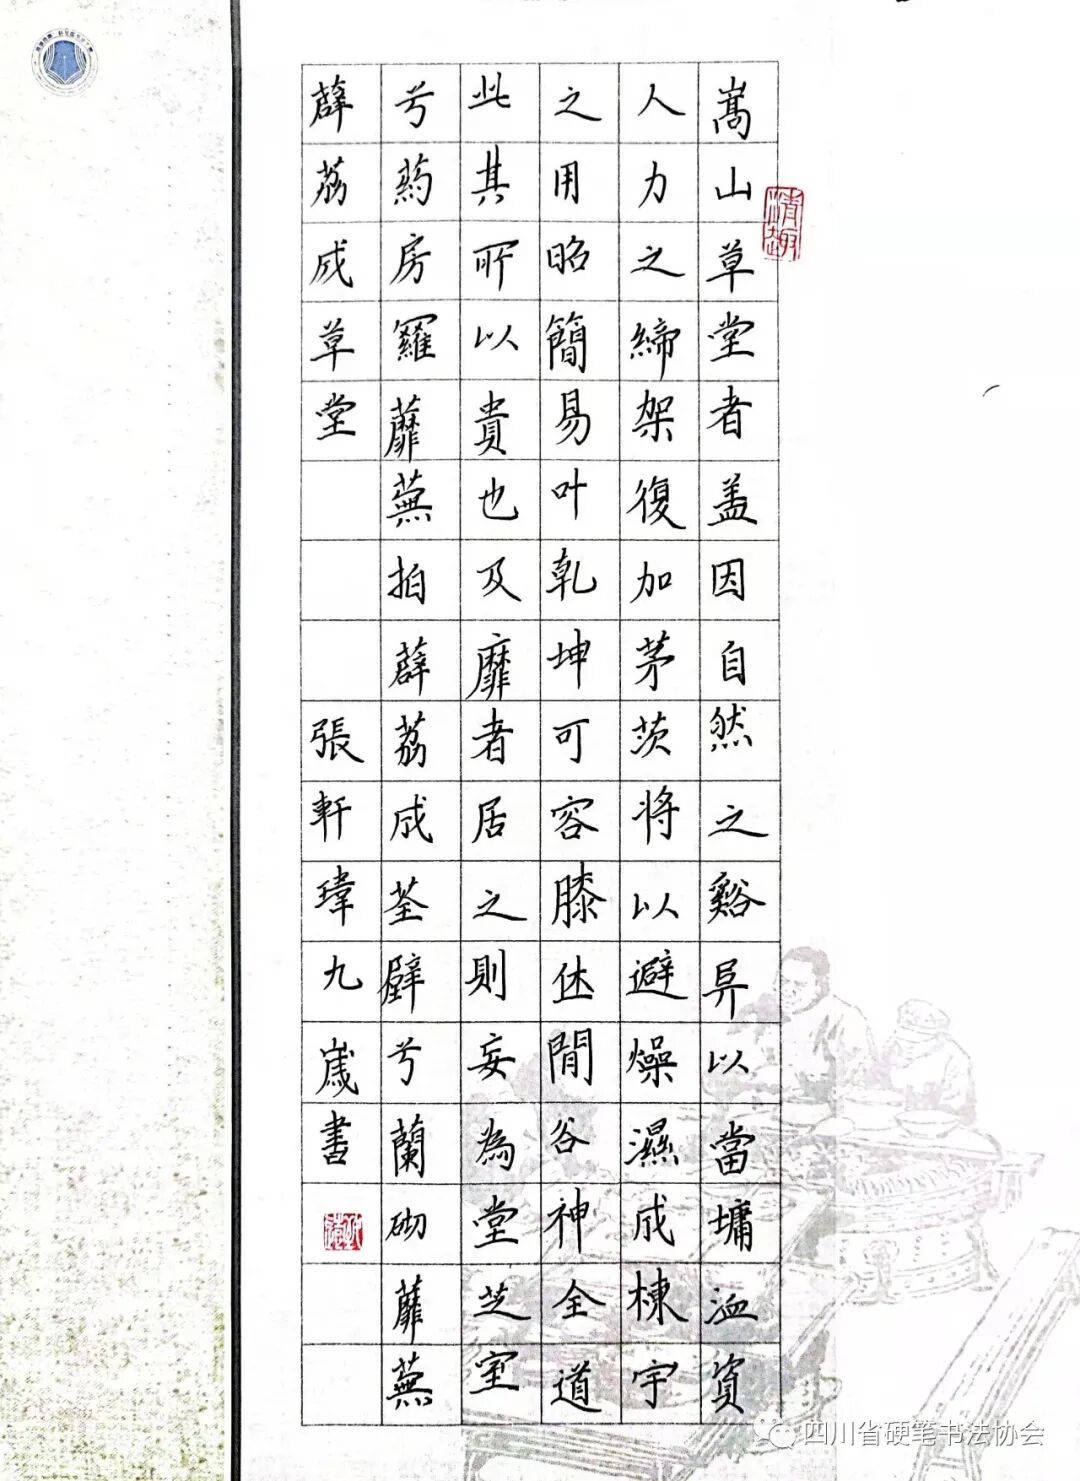 嵩山草堂者盖因自然之谿阜以當墉洫資
人力之締架復加茅茨將以避燥濕成棟宇
之用昭簡易叶乾坤可容膝休閒谷神全道
此其所以貴也及靡者居之則妄為堂芝室
兮葯房羅蘼蕪拍薜荔成荃壁兮蘭砌蘼蕪
薜荔成草堂 張軒瑋九歲書
清趣
四川省硬笔书法协会